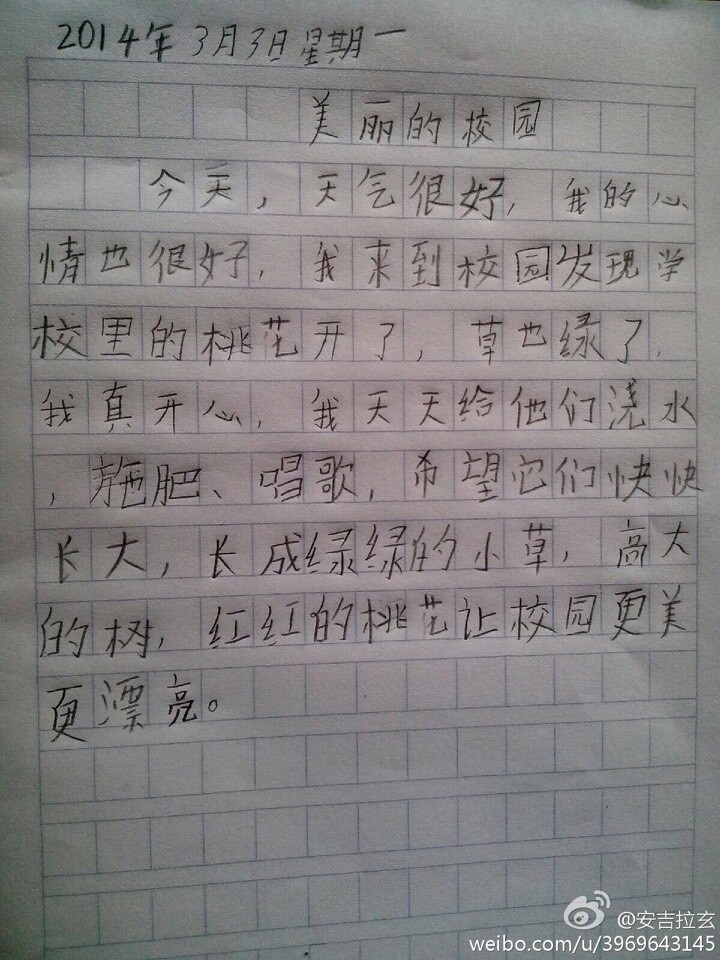 2014年3月3日星期一
美丽的校园
今天，天气很好，我的心
情也很好，我来到校园发现学
校里的桃花开了，草也绿了，
我真开心，我天天给他们浇水
，施肥、唱歌，希望它们快快
长大，长成绿绿的小草，高大
的树，红红的桃花让校园更美
更漂亮。
@安吉拉玄
weibo.com/u/3969643145